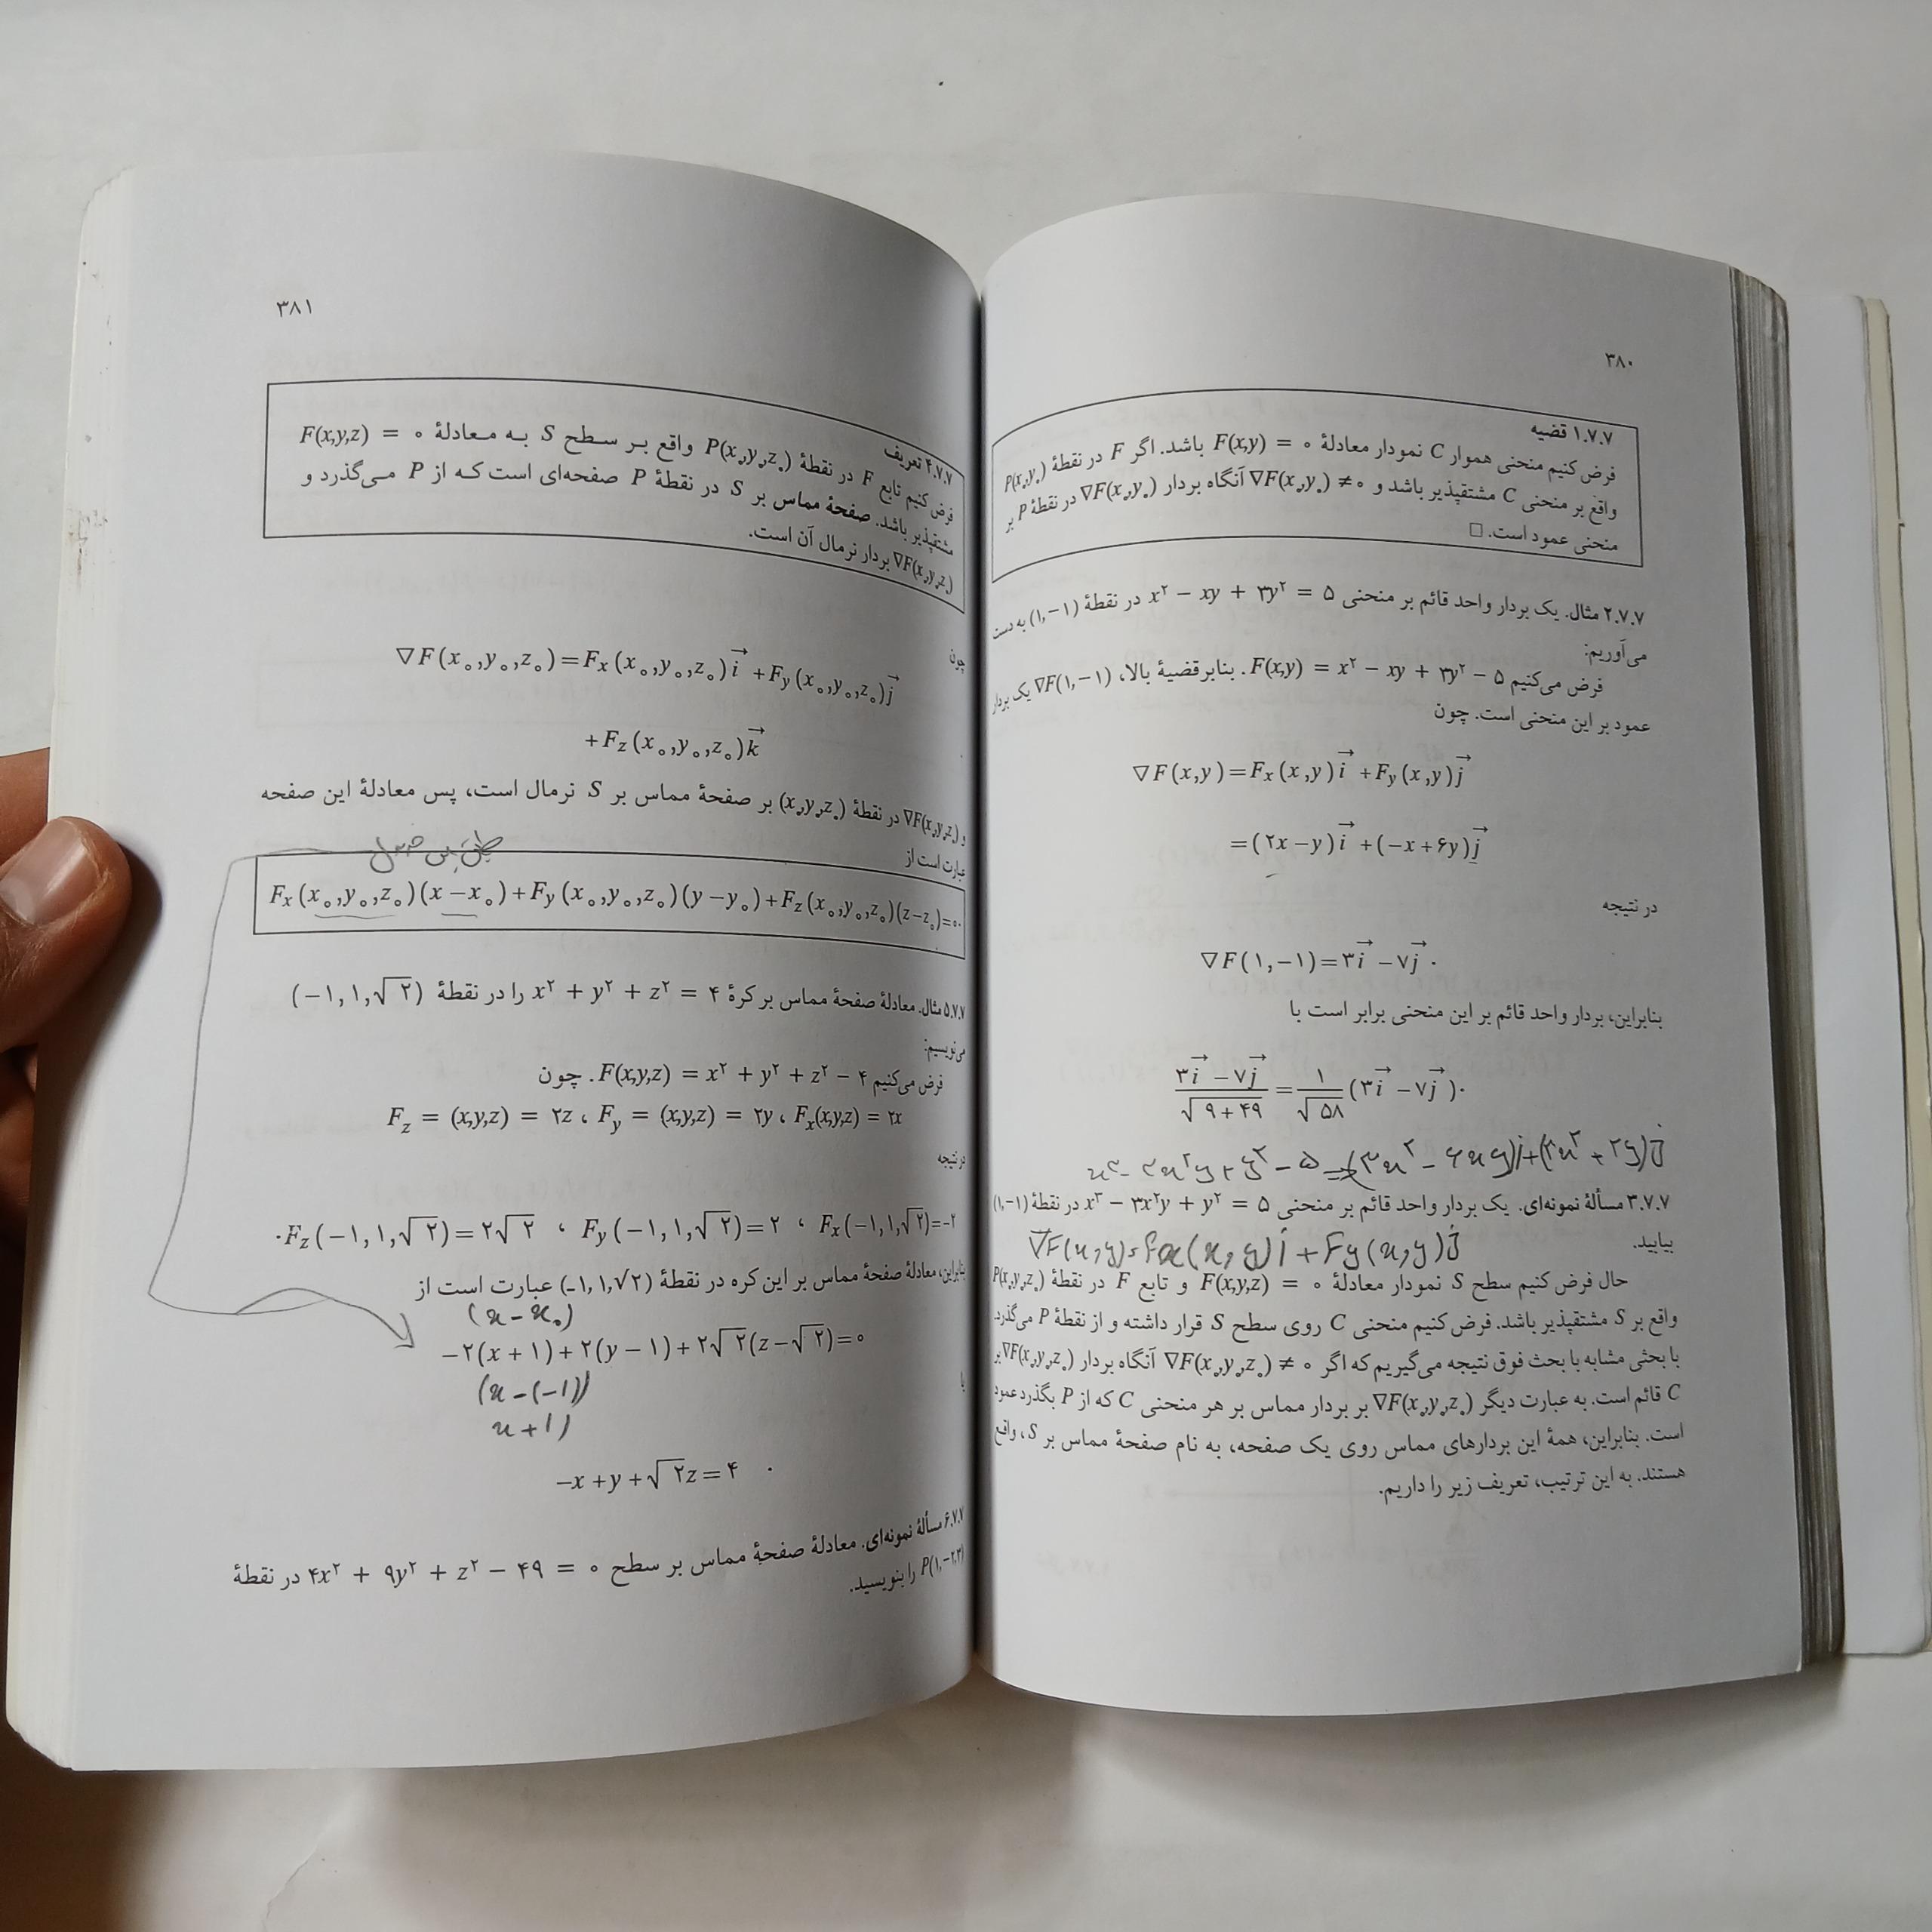 ۳۸۰
۱.۷.۷ قضیه
فرض کنیم منحنی هموار C نمودار معادلهٔ F(x,y) = ۰ باشد. اگر F در نقطهٔ P(x₀,y₀)
واقع بر منحنی C مشتقپذیر باشد و ∇F(x₀,y₀) ≠ ۰ آنگاه بردار ∇F(x₀,y₀) در نقطهٔ P بر
منحنی عمود است. □
۲.۷.۷ مثال. یک بردار واحد قائم بر منحنی x² − xy + ۳y² = ۵ در نقطهٔ (۱,−۱) به دست
می‌آوریم:
فرض می‌کنیم F(x,y) = x² − xy + ۳y² − ۵. بنابر قضیهٔ بالا، ∇F(۱,−۱) یک بردار
عمود بر این منحنی است. چون
∇F(x,y)=Fₓ(x,y)i⃗ +F_y(x,y)j⃗
=(۲x−y)i⃗ +(−x+۶y)j⃗
در نتیجه
∇F(۱,−۱)=۳i⃗ −۷j⃗ .
بنابراین، بردار واحد قائم بر این منحنی برابر است با
(۳i⃗ −۷j⃗)/√(۹+۴۹) = ۱/√۵۸ (۳i⃗ −۷j⃗).
x³ − ۳x²y + y² − ۵ → (۳x² − ۶xy)i + (۳x² + ۲y)j
۳.۷.۷ مسألهٔ نمونه‌ای. یک بردار واحد قائم بر منحنی x³ − ۳x²y + y² = ۵ در نقطهٔ (۱,−۱)
بیابید.
∇F(x,y)=Fx(x,y)i + Fy(x,y)j
حال فرض کنیم سطح S نمودار معادلهٔ F(x,y,z) = ۰ و تابع F در نقطهٔ P(x₀,y₀,z₀)
واقع بر S مشتقپذیر باشد. فرض کنیم منحنی C روی سطح S قرار داشته و از نقطهٔ P می‌گذرد.
با بحثی مشابه با بحث فوق نتیجه می‌گیریم که اگر ∇F(x₀,y₀,z₀) ≠ ۰ آنگاه بردار ∇F(x₀,y₀,z₀) بر
C قائم است. به عبارت دیگر ∇F(x₀,y₀,z₀) بر بردار مماس بر هر منحنی C که از P بگذرد عمود
است. بنابراین، همهٔ این بردارهای مماس روی یک صفحه، به نام صفحهٔ مماس بر S، واقع
هستند. به این ترتیب، تعریف زیر را داریم.
۳۸۱
۴.۷.۷ تعریف
فرض کنیم تابع F در نقطهٔ P(x₀,y₀,z₀) واقع بر سطح S به معادلهٔ F(x,y,z) = ۰
مشتقپذیر باشد. صفحهٔ مماس بر S در نقطهٔ P صفحه‌ای است که از P می‌گذرد و
∇F(x₀,y₀,z₀) بردار نرمال آن است.
چون
∇F(x₀,y₀,z₀)=Fₓ(x₀,y₀,z₀)i⃗ +F_y(x₀,y₀,z₀)j⃗
+F_z(x₀,y₀,z₀)k⃗
و ∇F(x₀,y₀,z₀) در نقطهٔ (x₀,y₀,z₀) بر صفحهٔ مماس بر S نرمال است، پس معادلهٔ این صفحه
عبارت است از
Fₓ(x₀,y₀,z₀)(x−x₀)+F_y(x₀,y₀,z₀)(y−y₀)+F_z(x₀,y₀,z₀)(z−z₀)=۰.
۵.۷.۷ مثال. معادلهٔ صفحهٔ مماس بر کرهٔ x² + y² + z² = ۴ را در نقطهٔ (−۱,۱,√۲)
می‌نویسیم:
فرض می‌کنیم F(x,y,z) = x² + y² + z² − ۴. چون
F_z = (x,y,z) = ۲z ، F_y = (x,y,z) = ۲y ، Fₓ(x,y,z) = ۲x
در نتیجه
.F_z(−۱,۱,√۲)=۲√۲ ، F_y(−۱,۱,√۲)=۲ ، Fₓ(−۱,۱,√۲)=−۲
بنابراین، معادلهٔ صفحهٔ مماس بر این کره در نقطهٔ (−۱,۱,√۲) عبارت است از
(x−x₀)
−۲(x+۱)+۲(y−۱)+۲√۲(z−√۲)=۰
(x−(−1))
x+1)
یا
−x+y+√۲z=۴ .
۶.۷.۷ مسألهٔ نمونه‌ای. معادلهٔ صفحهٔ مماس بر سطح ۴x² + ۹y² + z² − ۴۹ = ۰ در نقطهٔ
P(۱,−۲,۳) را بنویسید.